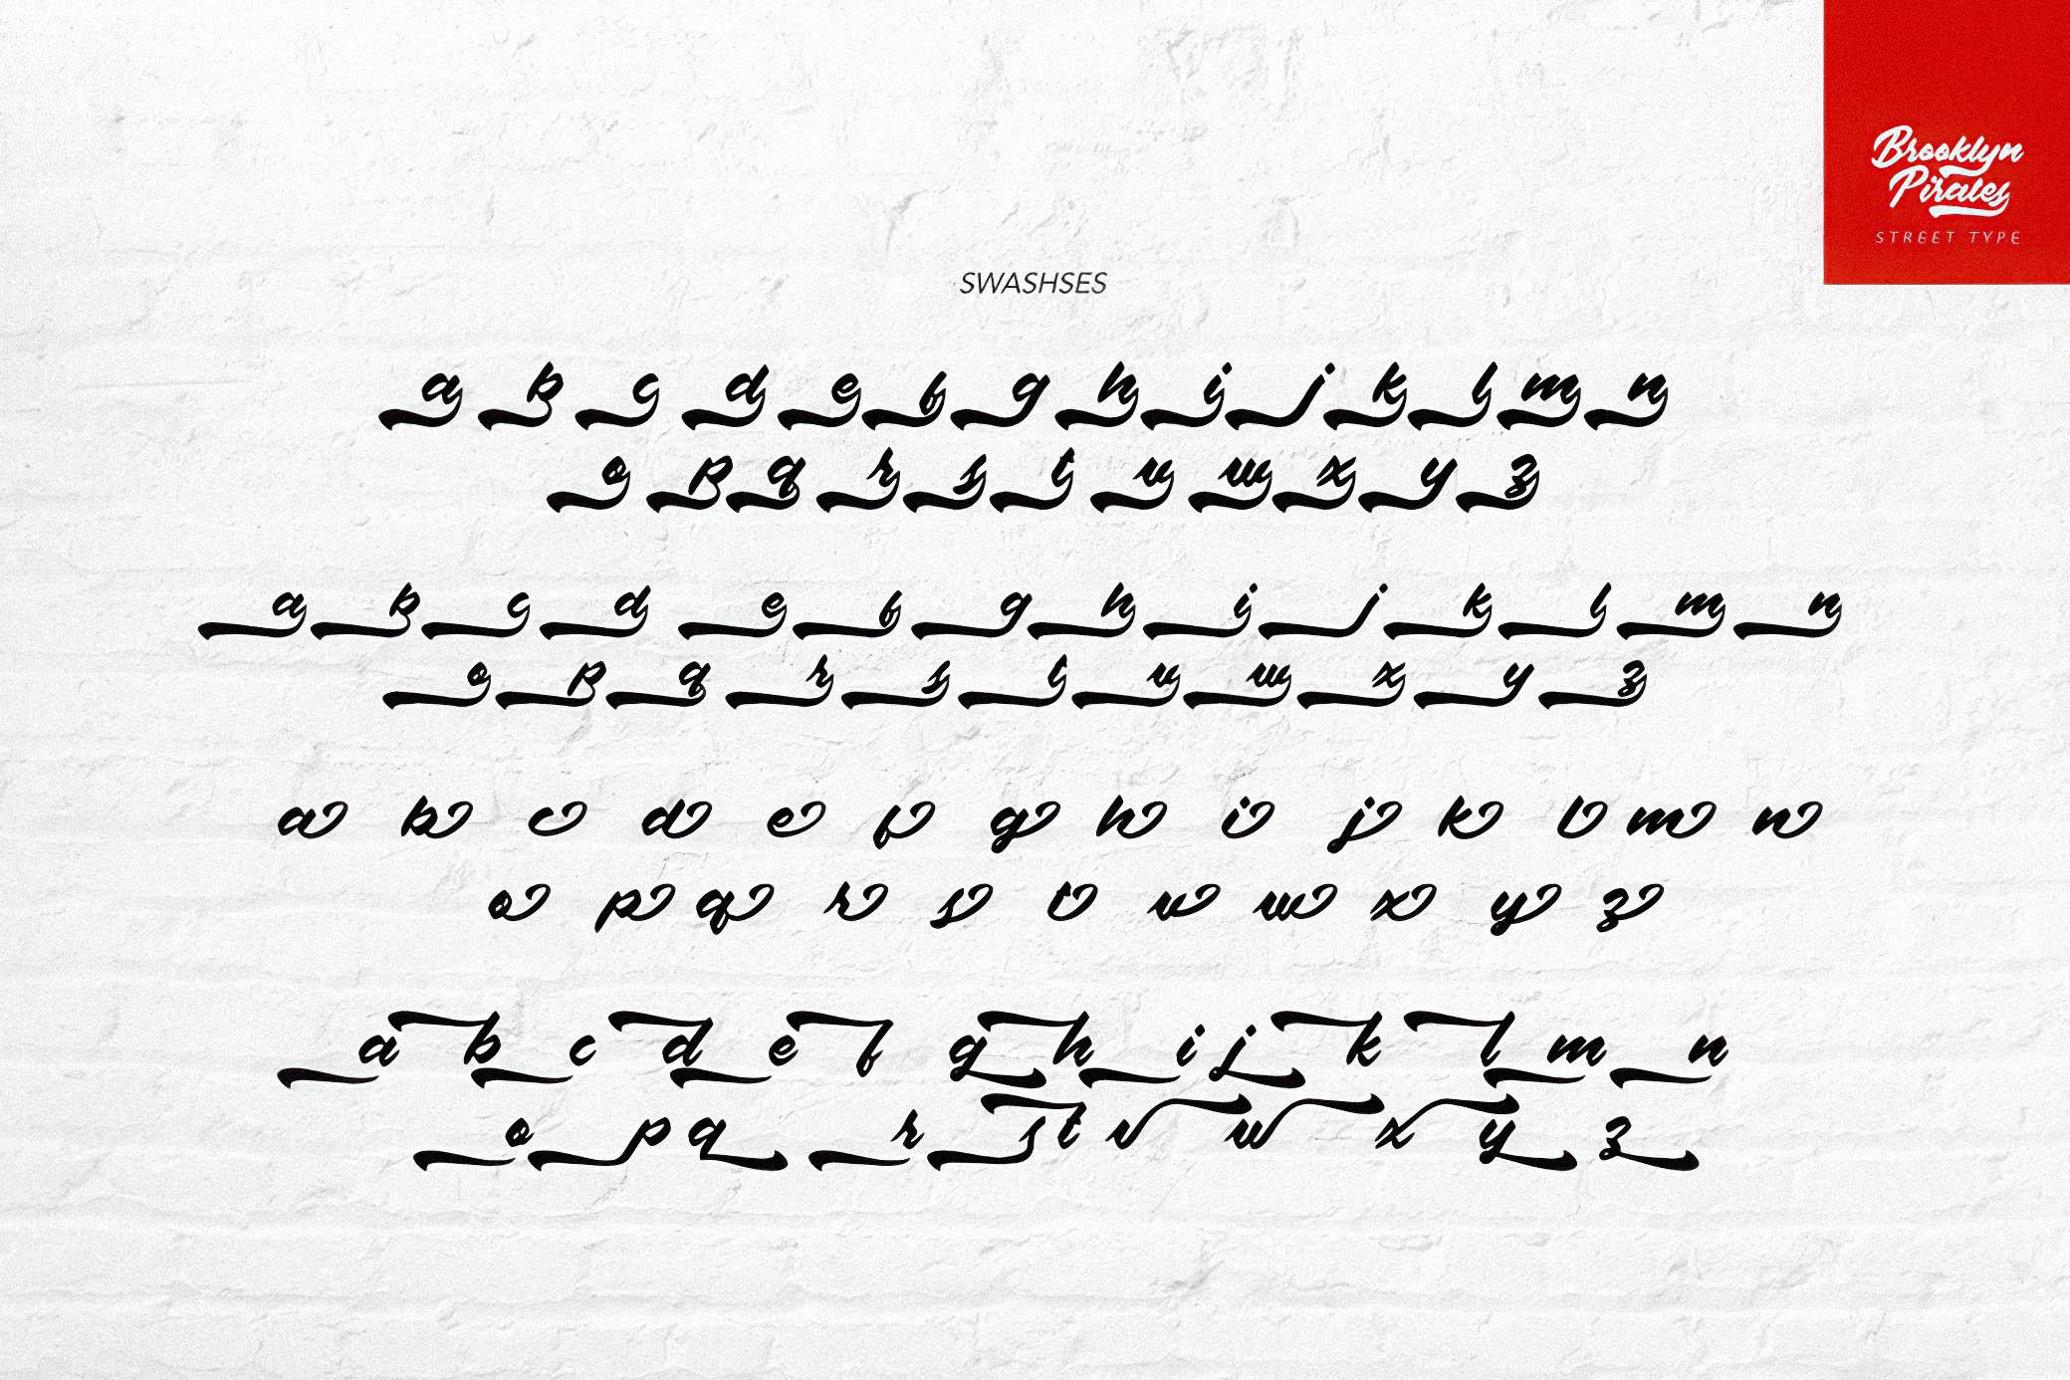 Brooklyn
Pirates
STREET TYPE
SWASHSES
a b c d e f g h i j k l m n
o p q r s t v w x y z
a b c d e f g h i j k l m n
o p q r s t v w x y z
a b c d e f g h i j k l m n
o p q r s t v w x y z
a b c d e f g h i j k l m n
o p q r s t v w x y z